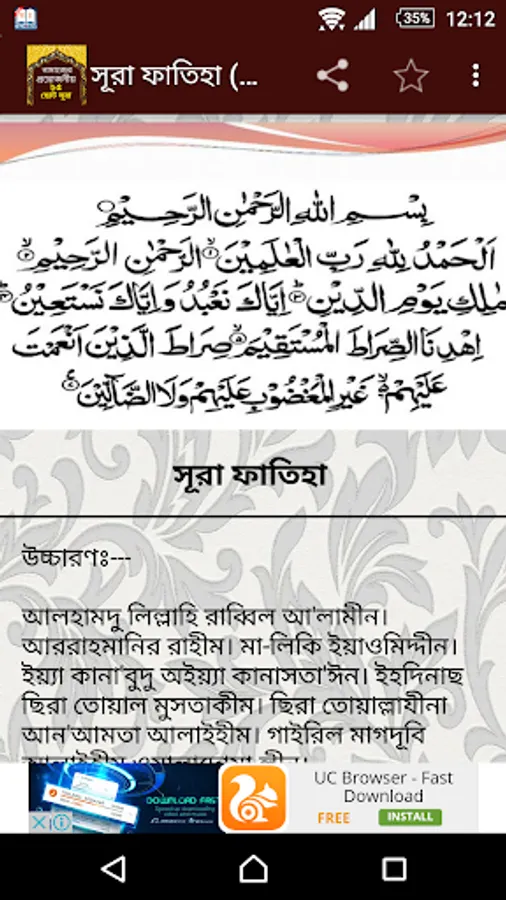 35% 12:12
নামাজের
প্রয়োজনীয়
ছোট সূরা
সূরা ফাতিহা (...
بِسْــمِ اللهِ الرَّحْمٰنِ الرَّحِـيْمِ
اَلْحَمْدُ لِلّٰهِ رَبِّ الْعٰلَمِيْنَ الرَّحْمٰنِ الرَّحِيْمِ
مٰلِكِ يَوْمِ الدِّيْنِ اِيَّاكَ نَعْبُدُ وَاِيَّاكَ نَسْتَعِيْنُ
اِهْدِنَا الصِّرَاطَ الْمُسْتَقِيْمَ صِرَاطَ الَّذِيْنَ اَنْعَمْتَ
عَلَيْهِمْ غَيْرِ الْمَغْضُوْبِ عَلَيْهِمْ وَلَا الضَّآلِّيْنَ
সূরা ফাতিহা
উচ্চারণঃ---
আলহামদু লিল্লাহি রাব্বিল আ'লামীন।
আররাহমানির রাহীম। মা-লিকি ইয়াওমিদ্দীন।
ইয়্যা কানা'বুদু অইয়্যা কানাসতা'ঈন। ইহদিনাছ
ছিরা তোয়াল মুসতাকীম। ছিরা তোয়াল্লাযীনা
আন'আমতা আলাইহীম। গাইরিল মাগদূবি
DOWNLOAD FAST
UC Browser - Fast
Download
FREE INSTALL